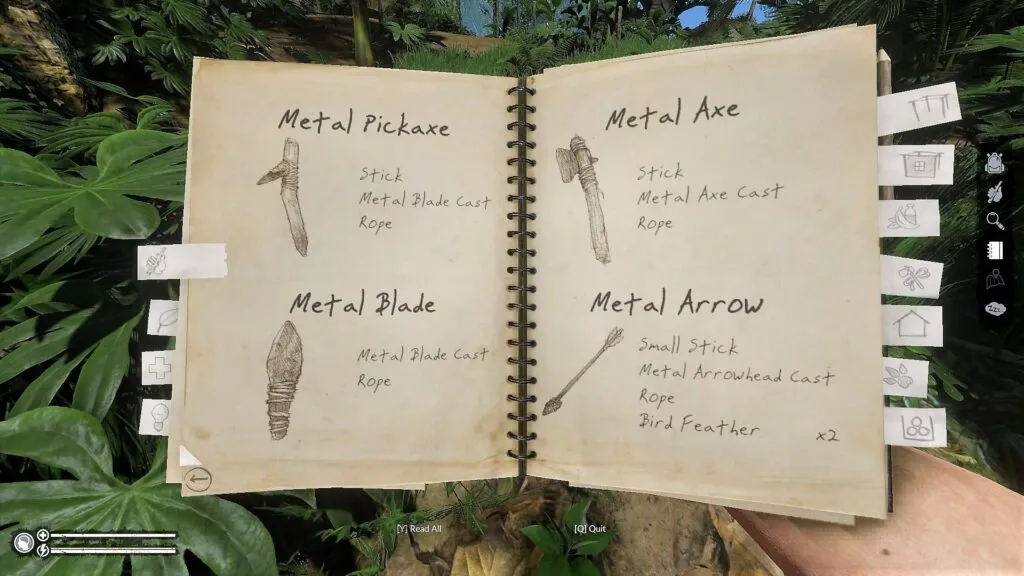 Metal Pickaxe
Stick
Metal Blade Cast
Rope
Metal Blade
Metal Blade Cast
Rope
Metal Axe
Stick
Metal Axe Cast
Rope
Metal Arrow
Small Stick
Metal Arrowhead Cast
Rope
Bird Feather
x2
[Y] Read All
[Q] Quit
Zzz